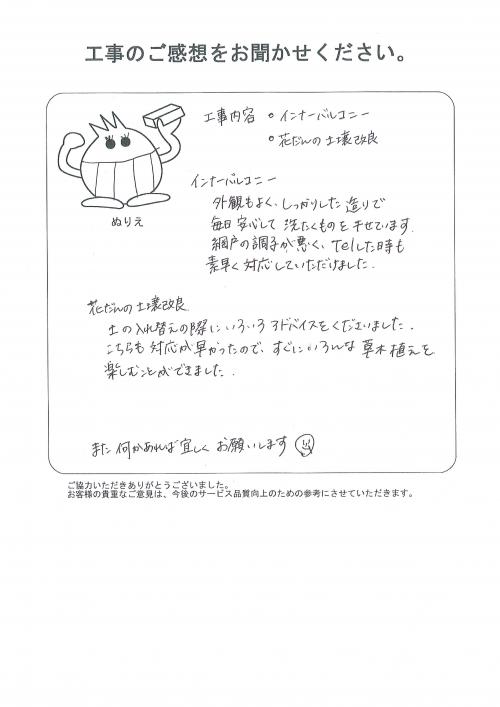 工事のご感想をお聞かせください。
工事内容 ・インナーバルコニー
・花だんの土壌改良
ぬりえ
インナーバルコニー
外観もよく、しっかりした造りで
毎日安心して洗たくものを干せています。
網戸の調子が悪く、Telした時も
素早く対応していただけました。
花だんの土壌改良
土の入れ替えの際にいろいろアドバイスをくださいました。
こちらも対応が早かったので、すぐにいろんな草木植えを
楽しむことができました。
また何かあれば宜しくお願いします
ご協力いただきありがとうございました。
お客様の貴重なご意見は、今後のサービス品質向上のための参考にさせていただきます。